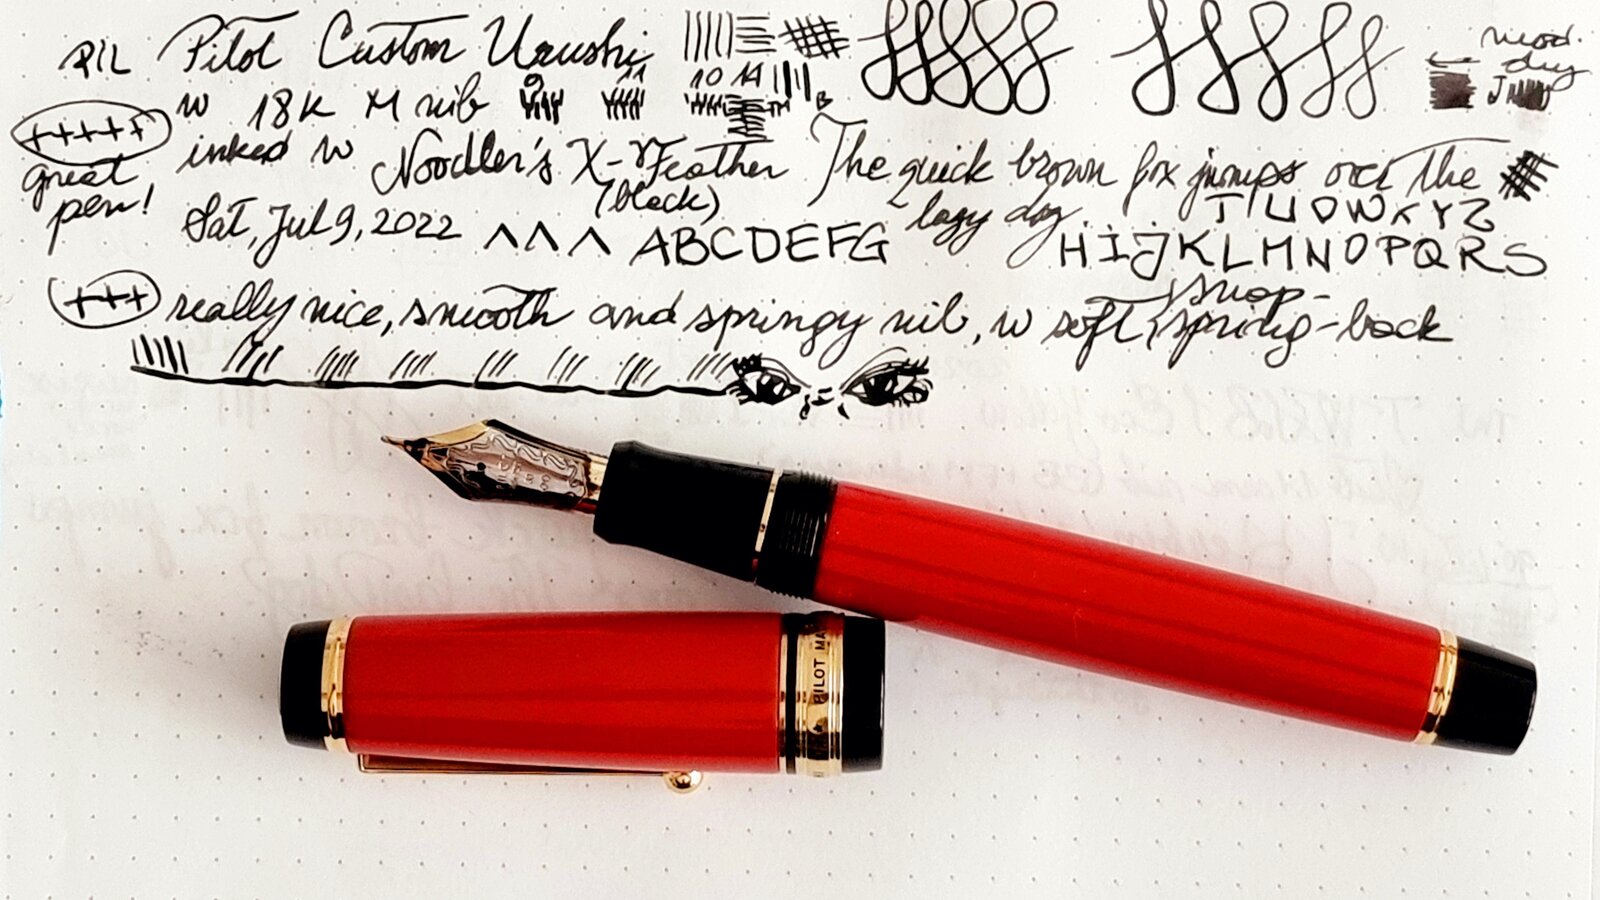 PIL Pilot Custom Urushi
w 18K M nib
10
+++++ inked w Noodler's X-Feather
(black)
great pen!
The quick brown fox jumps over the
lazy dog
Sat, Jul 9, 2022 ABCDEFG
T U D W X Y Z
H I J K L M N O P Q R S
+++ really nice, smooth and springy nib, w soft, spring-back
snap-
dry
PILOT MA